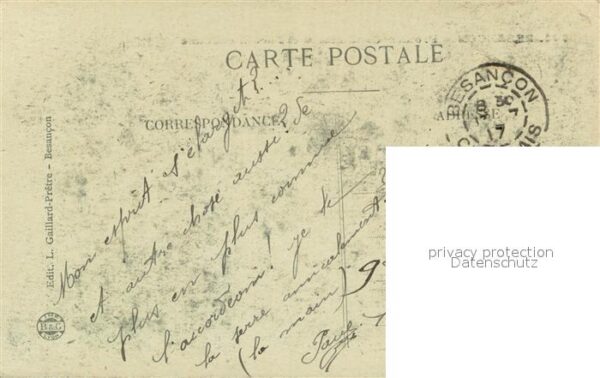 CARTE POSTALE
CORRESPONDANCE
ADRESSE
BESANÇON
17
Mon esprit s'élargit?...
et autre chose aussi? de
plus en plus comme
l'accordéon! je te
la serre amicalement?
(la main)
Paul
Edit. L. Gaillard-Prêtre - Besançon
B&G
privacy protection
Datenschutz